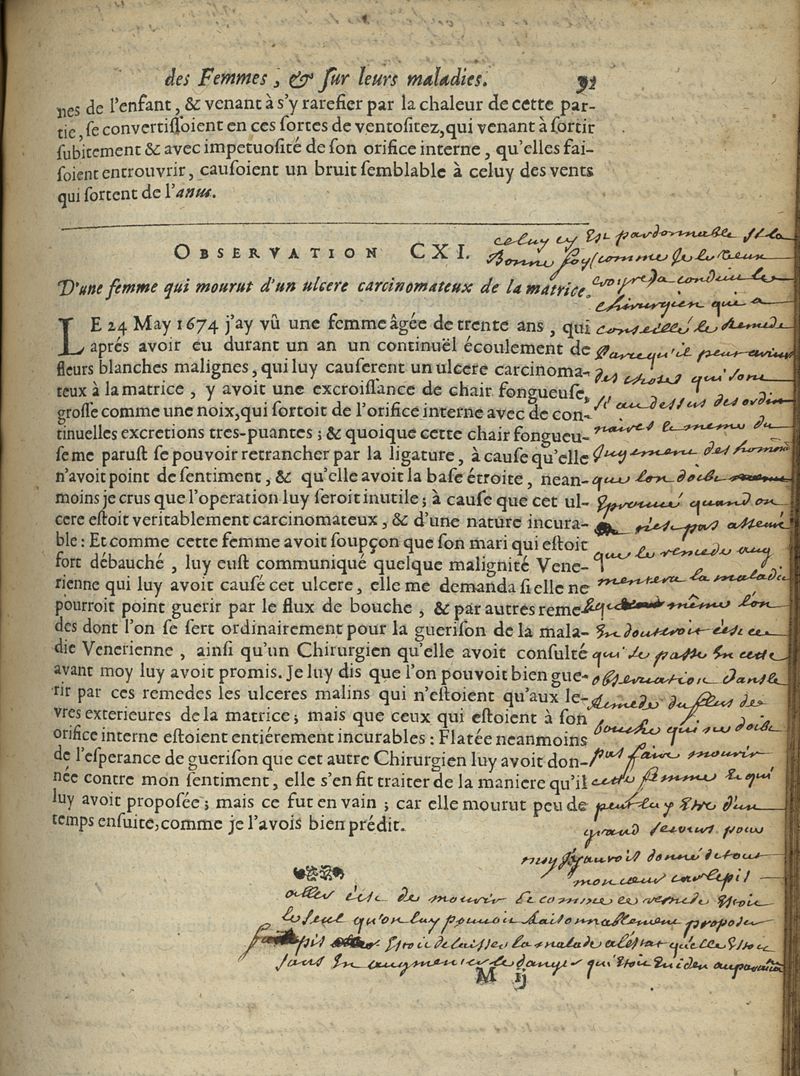 des Femmes, & sur leurs maladies. 91
nes de l'enfant, & venant à s'y rarefier par la chaleur de cette par-
tie, se convertissoient en ces sortes de ventositez, qui venant à sortir
subitement & avec impetuosité de son orifice interne, qu'elles fai-
soient entrouvrir, causoient un bruit semblable à celuy des vents
qui sortent de l'anus.
OBSERVATION CXI.
D'une femme qui mourut d'un ulcere carcinomateux de la matrice.
LE 24 May 1674 j'ay vû une femme âgée de trente ans, qui
aprés avoir eu durant un an un continuël écoulement de
fleurs blanches malignes, qui luy causerent un ulcere carcinoma-
teux à la matrice, y avoit une excroissance de chair fongueuse,
grosse comme une noix, qui sortoit de l'orifice interne avec de con-
tinuelles excretions tres-puantes; & quoique cette chair fongueu-
se me parust se pouvoir retrancher par la ligature, à cause qu'elle
n'avoit point de sentiment, & qu'elle avoit la base étroite, nean-
moins je crus que l'operation luy seroit inutile; à cause que cet ul-
cere estoit veritablement carcinomateux, & d'une nature incura-
ble: Et comme cette femme avoit soupçon que son mari qui estoit
fort débauché, luy eust communiqué quelque malignité Vene-
rienne qui luy avoit causé cet ulcere, elle me demanda si elle ne
pourroit point guerir par le flux de bouche, & par autres reme-
des dont l'on se sert ordinairement pour la guerison de la mala-
die Venerienne, ainsi qu'un Chirurgien qu'elle avoit consulté
avant moy luy avoit promis. Je luy dis que l'on pouvoit bien gue-
rir par ces remedes les ulceres malins qui n'estoient qu'aux le-
vres exterieures de la matrice; mais que ceux qui estoient à son
orifice interne estoient entiérement incurables: Flatée neanmoins
de l'esperance de guerison que cet autre Chirurgien luy avoit don-
née contre mon sentiment, elle s'en fit traiter de la maniere qu'il
luy avoit proposée; mais ce fut en vain; car elle mourut peu de
temps ensuite, comme je l'avois bien prédit.
celuy cy est pardonnable si la
bonne foy comme je le veux
croire a conduit le
chirurgien qui a
conseillé le remede
parce qu'il peut
des choses qui sont
au dessus des ordi
naires le mesme du
jugement des hommes
que l'on doibt
quand on
n'est pas asseuré
que le remede aug
mentera la maladie
mesme l'on
ce
qui se passe en cette
observation dans le
remede du flus de
bouche qui ne doibt
pas faire mourir
cette femme et qui
peut luy estre d'un
grand secours pour
moy j'aurois donné de tout
mon coeur car le pis
aller est de mourir et comme ce remede estoit
le seul qu'on luy pouvoit raisonnablement proposer
pis estoit de laisser la malade a l'estat qu'elle estoit
sans en augmenter le danger qui estoit evident auparavant
M ij